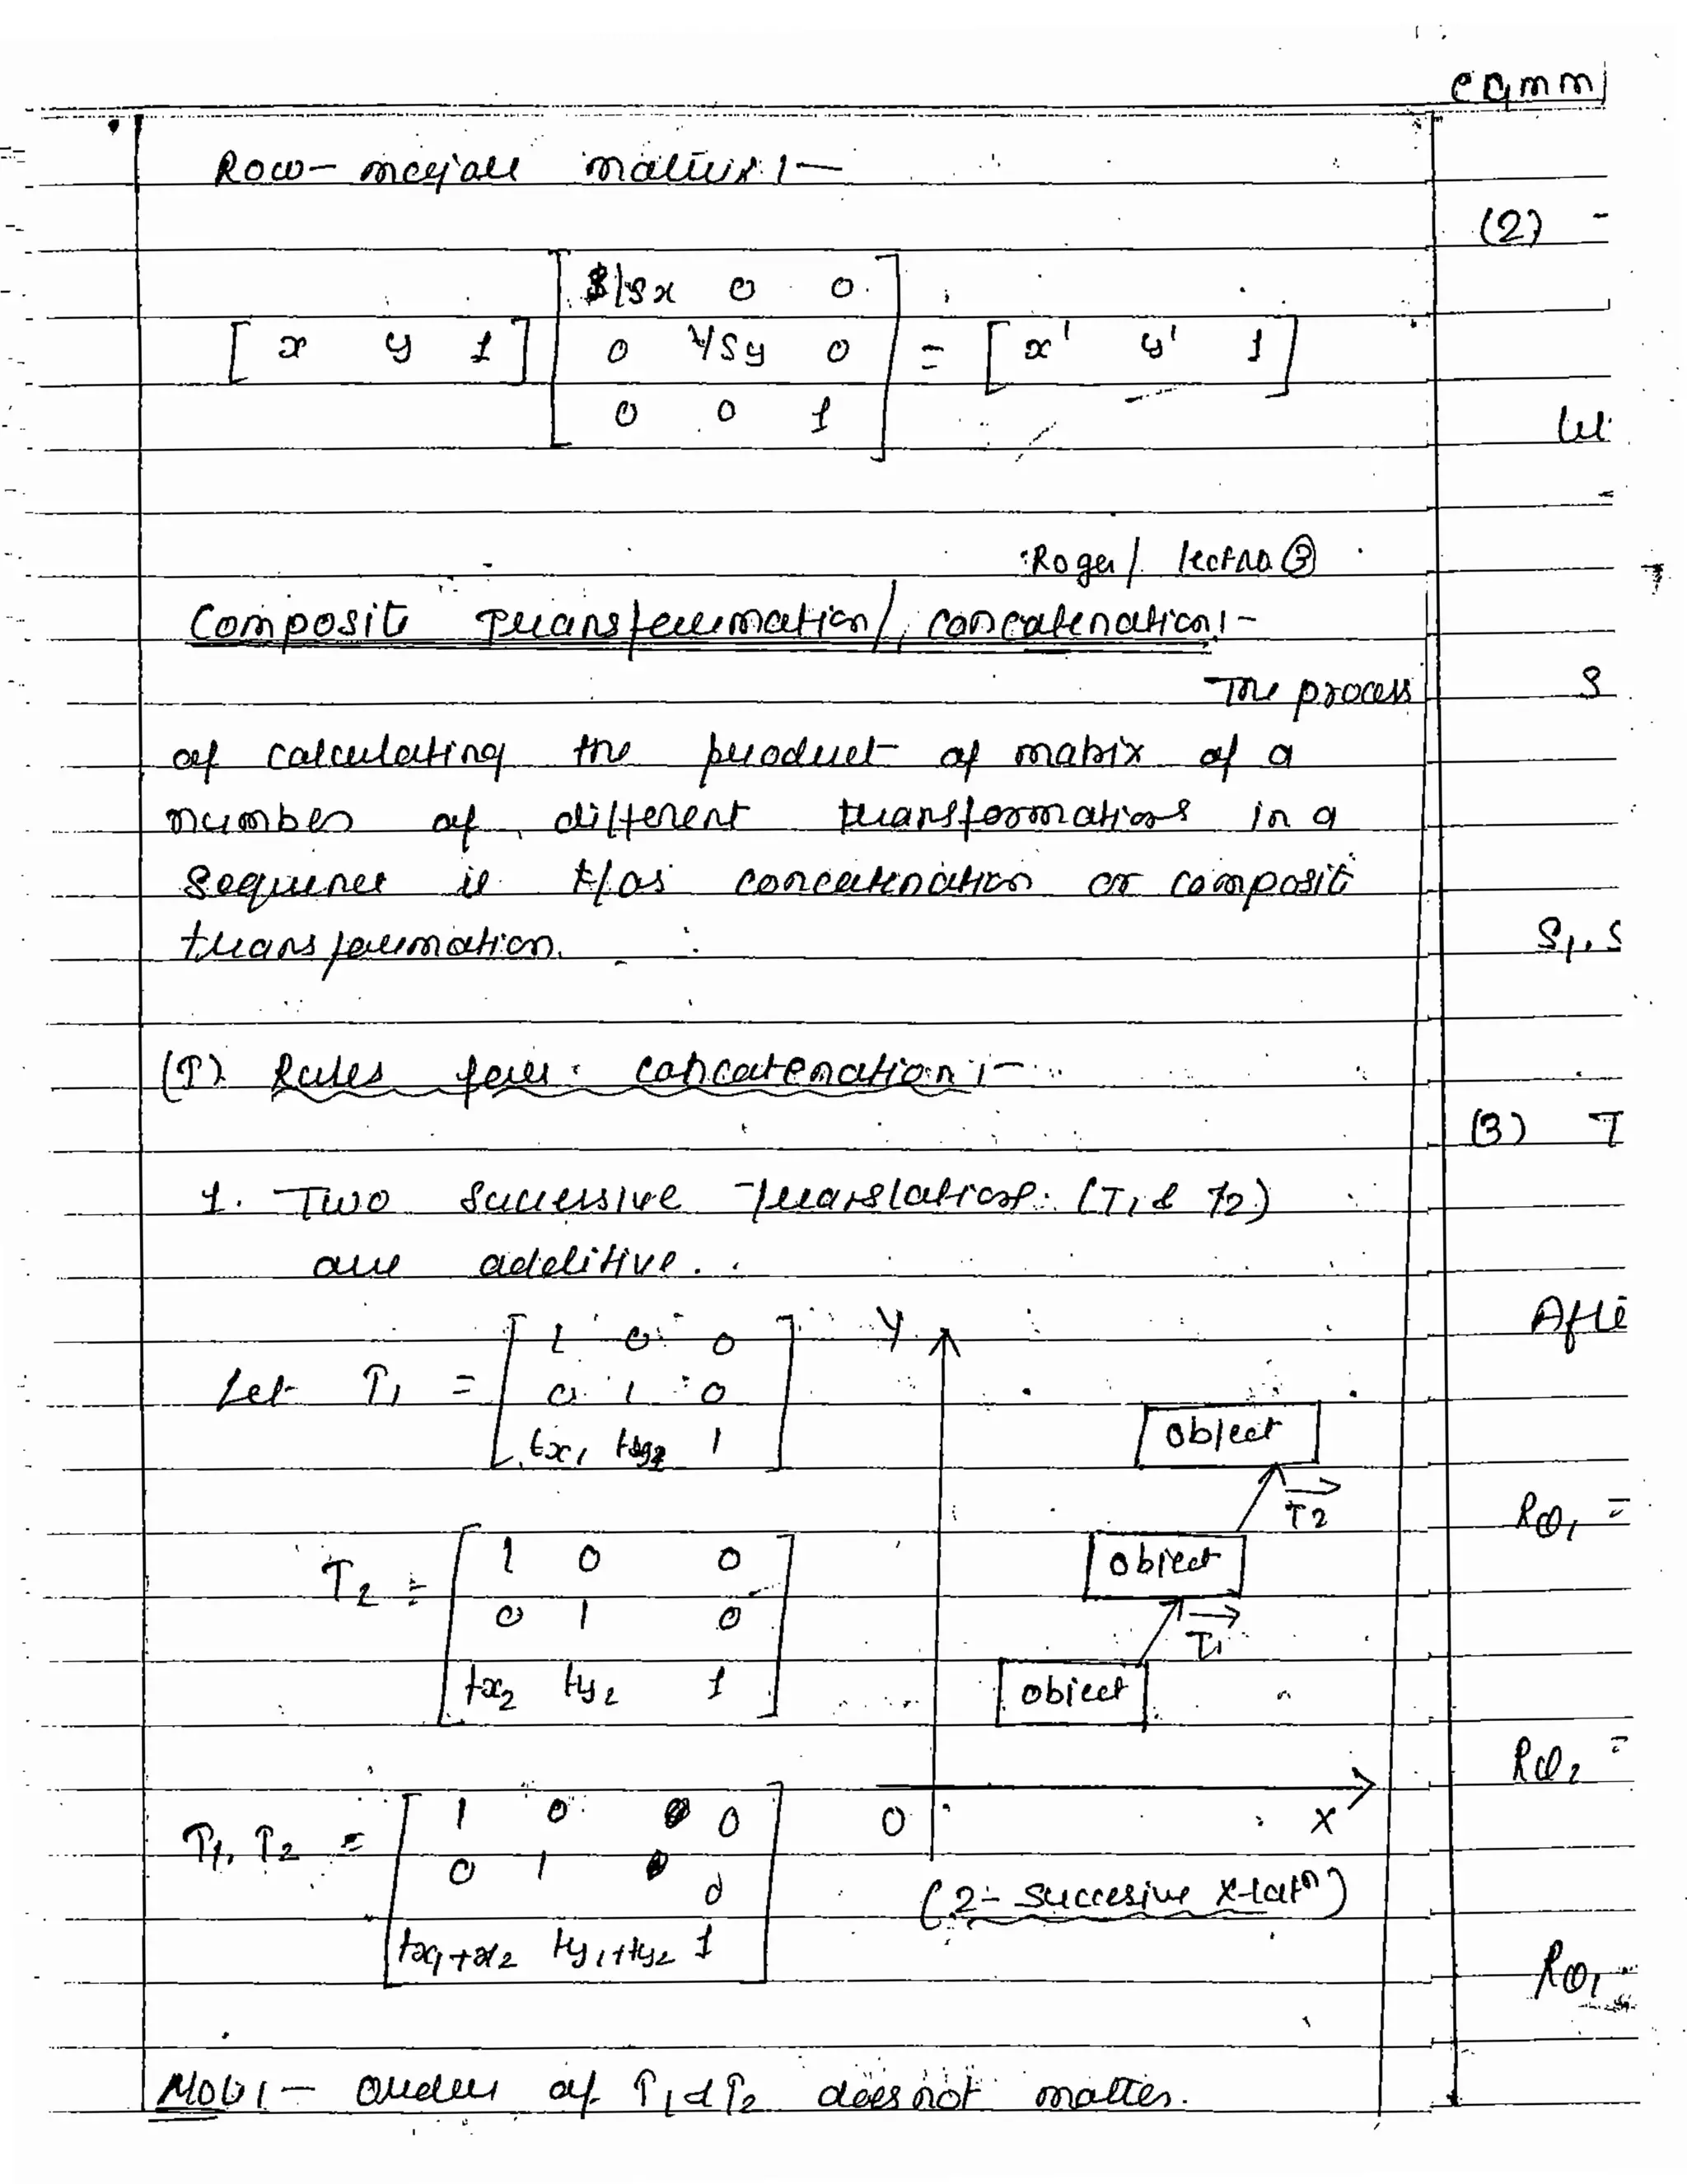 Row-major matrix :-
[ x y 1 ] [ 1/Sx 0 0
0 1/Sy 0
0 0 1 ] = [ x' y' 1 ]
Roger/ lect no 3
Composite Transformation/ concatenation :-
The process
of calculating the product of matrix of a
number of different transformations in a
sequence is k/as concatenation or composite
transformation.
(I) Rules for concatenation :-
1. Two successive Translations (T1 & T2)
are additive.
Let T1 = [ 1 0 0
0 1 0
tx1 ty2 1 ]
T2 = [ 1 0 0
0 1 0
tx2 ty2 1 ]
T1, T2 = [ 1 0 0
0 1 0
tx1+x2 ty1+ty2 1 ]
Y
object
T2
object
T1
object
0 X
(2- succesive X-latn)
Note :- Order of T1 & T2 does not matter.
(2) -
S
(3) T
Rθ1 =
Rθ2 =
Rθ1